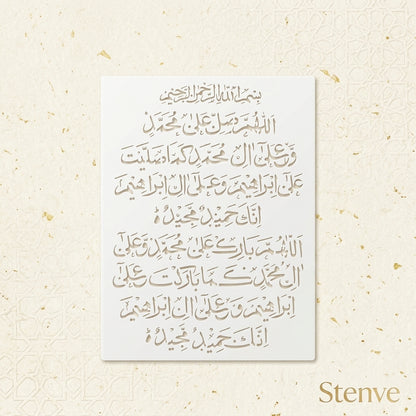 بِسْمِ اللهِ الرَّحْمٰنِ الرَّحِيْمِ
اَللّٰهُمَّ صَلِّ عَلٰى مُحَمَّدٍ
وَّعَلٰى اٰلِ مُحَمَّدٍ كَمَا صَلَّيْتَ
عَلٰى اِبْرَاهِيْمَ وَعَلٰى اٰلِ اِبْرَاهِيْمَ
اِنَّكَ حَمِيْدٌ مَّجِيْدٌ
اَللّٰهُمَّ بَارِكْ عَلٰى مُحَمَّدٍ وَّعَلٰى
اٰلِ مُحَمَّدٍ كَمَا بَارَكْتَ عَلٰى
اِبْرَاهِيْمَ وَعَلٰى اٰلِ اِبْرَاهِيْمَ
اِنَّكَ حَمِيْدٌ مَّجِيْدٌ
Stenve